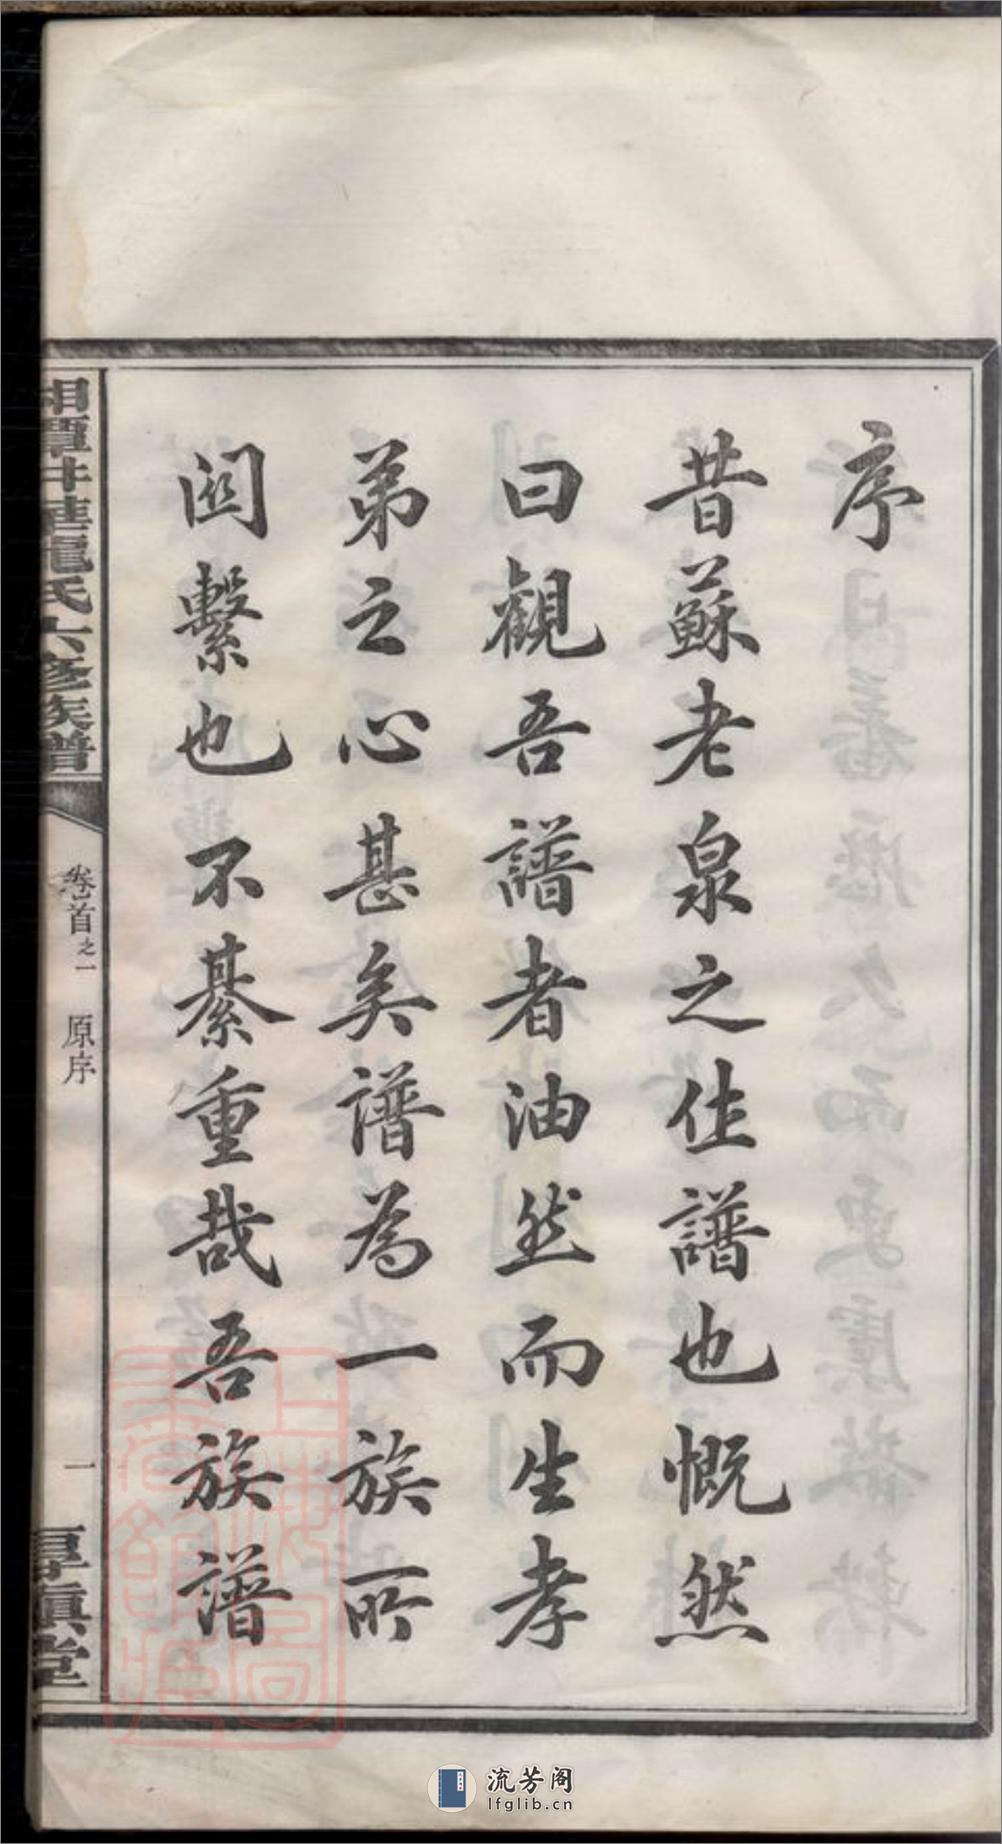 序
昔蘇老泉之作譜也慨然
曰觀吾譜者油然而生孝
弟之心甚矣譜為一族所
関繫也不綦重哉吾族譜
湘潭井塘龍氏六修族譜
卷首之一 原序
一
厚慎堂
流芳阁
lfglib.cn